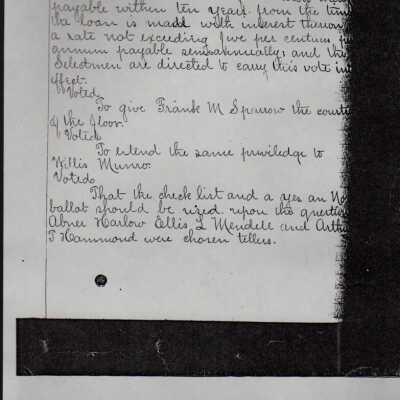 payable within ten years from the time
the loan is made with interest thereon
a rate not exceeding five per centum
annum payable semiannually, and the
Selectmen are directed to carry this vote in
effect.
Voted.
To give Frank M Sparrow the courte
of the floor.
Voted
To extend the same priviledge to
Willis Munro.
Voted.
That the check list and a yes an No
ballot should be used upon the question
Abner Harlow Ellis L Mendell and Arthu
T Hammond were chosen tellers.